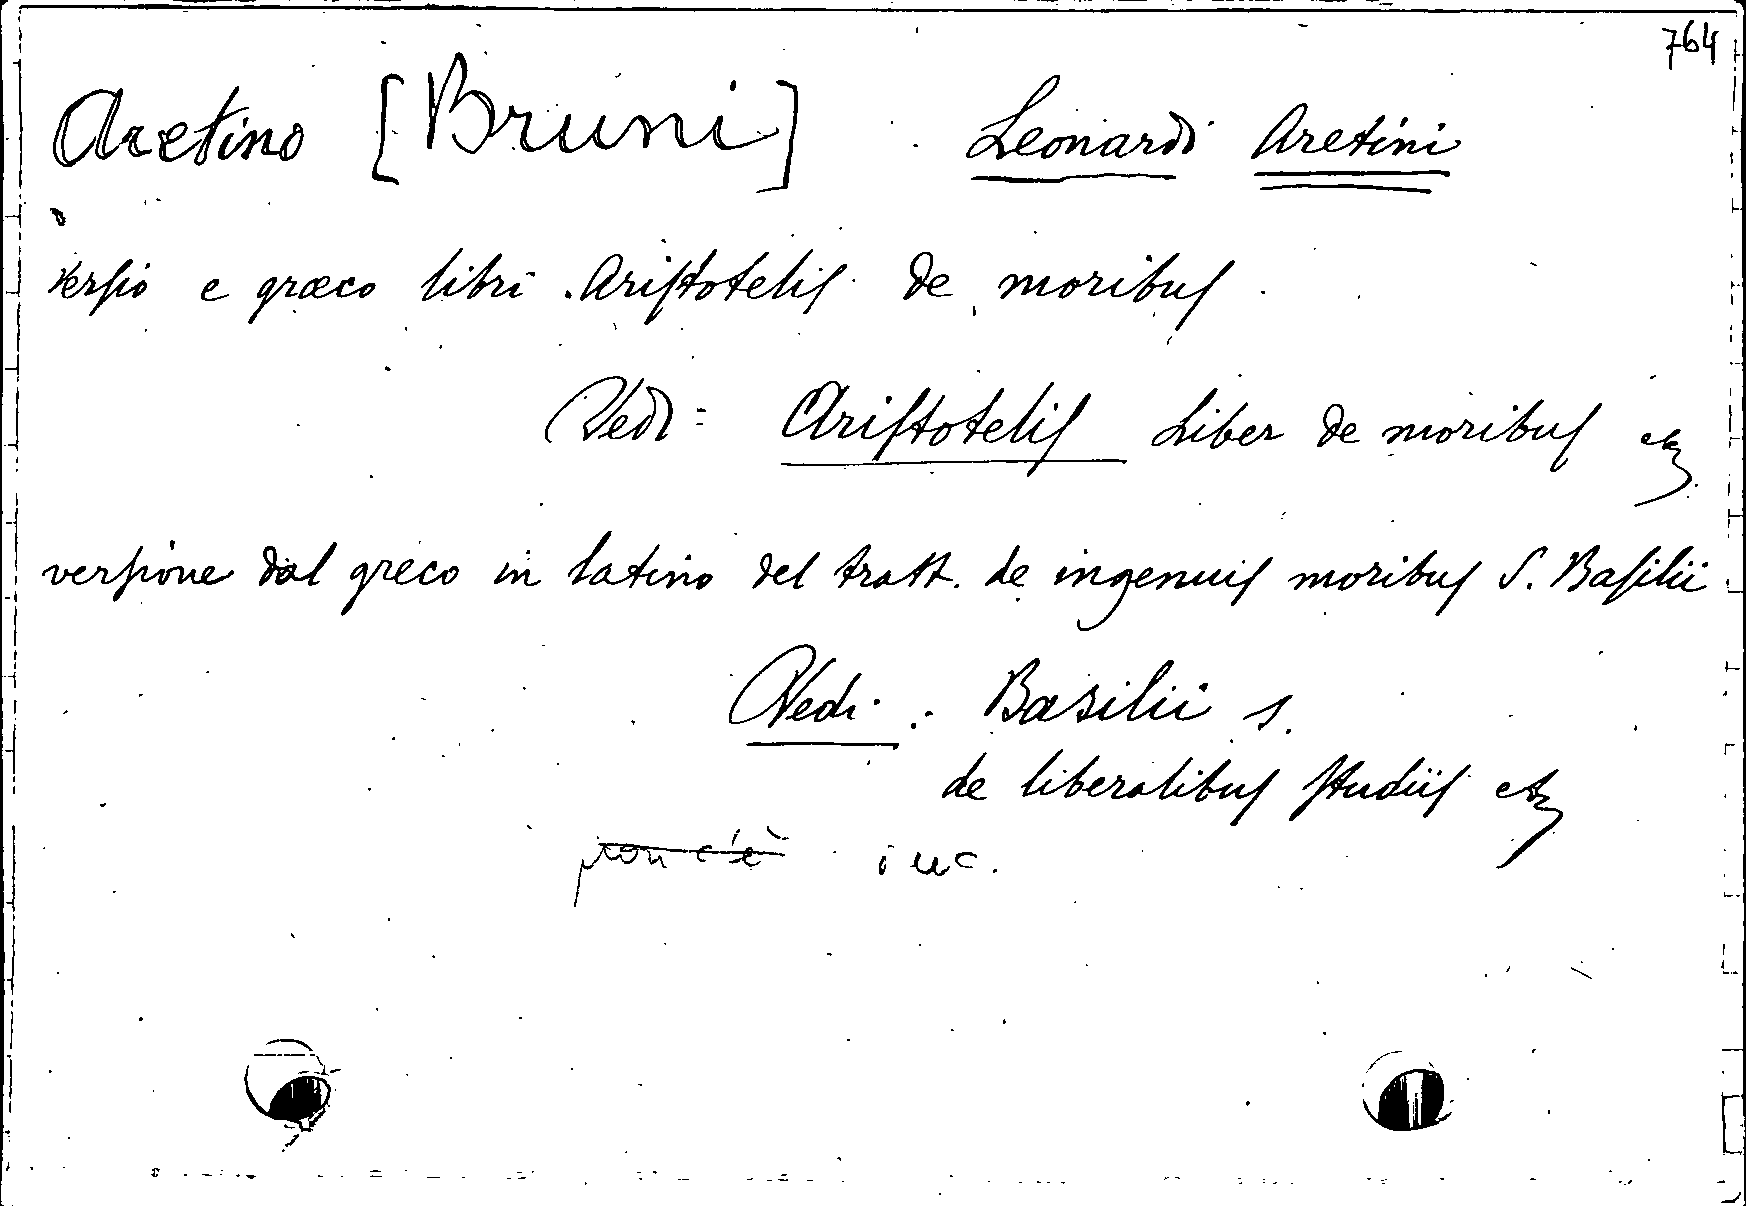 764
Aretino [Bruni] Leonardi Aretini
Versio e græco libri Aristotelis de moribus
Vedi: Aristotelis Liber de moribus etc
versione dal greco in latino del tratt. de ingenuis moribus S. Basilii
Vedi: Basilii S.
de liberalibus studiis etc
non c'è inc.